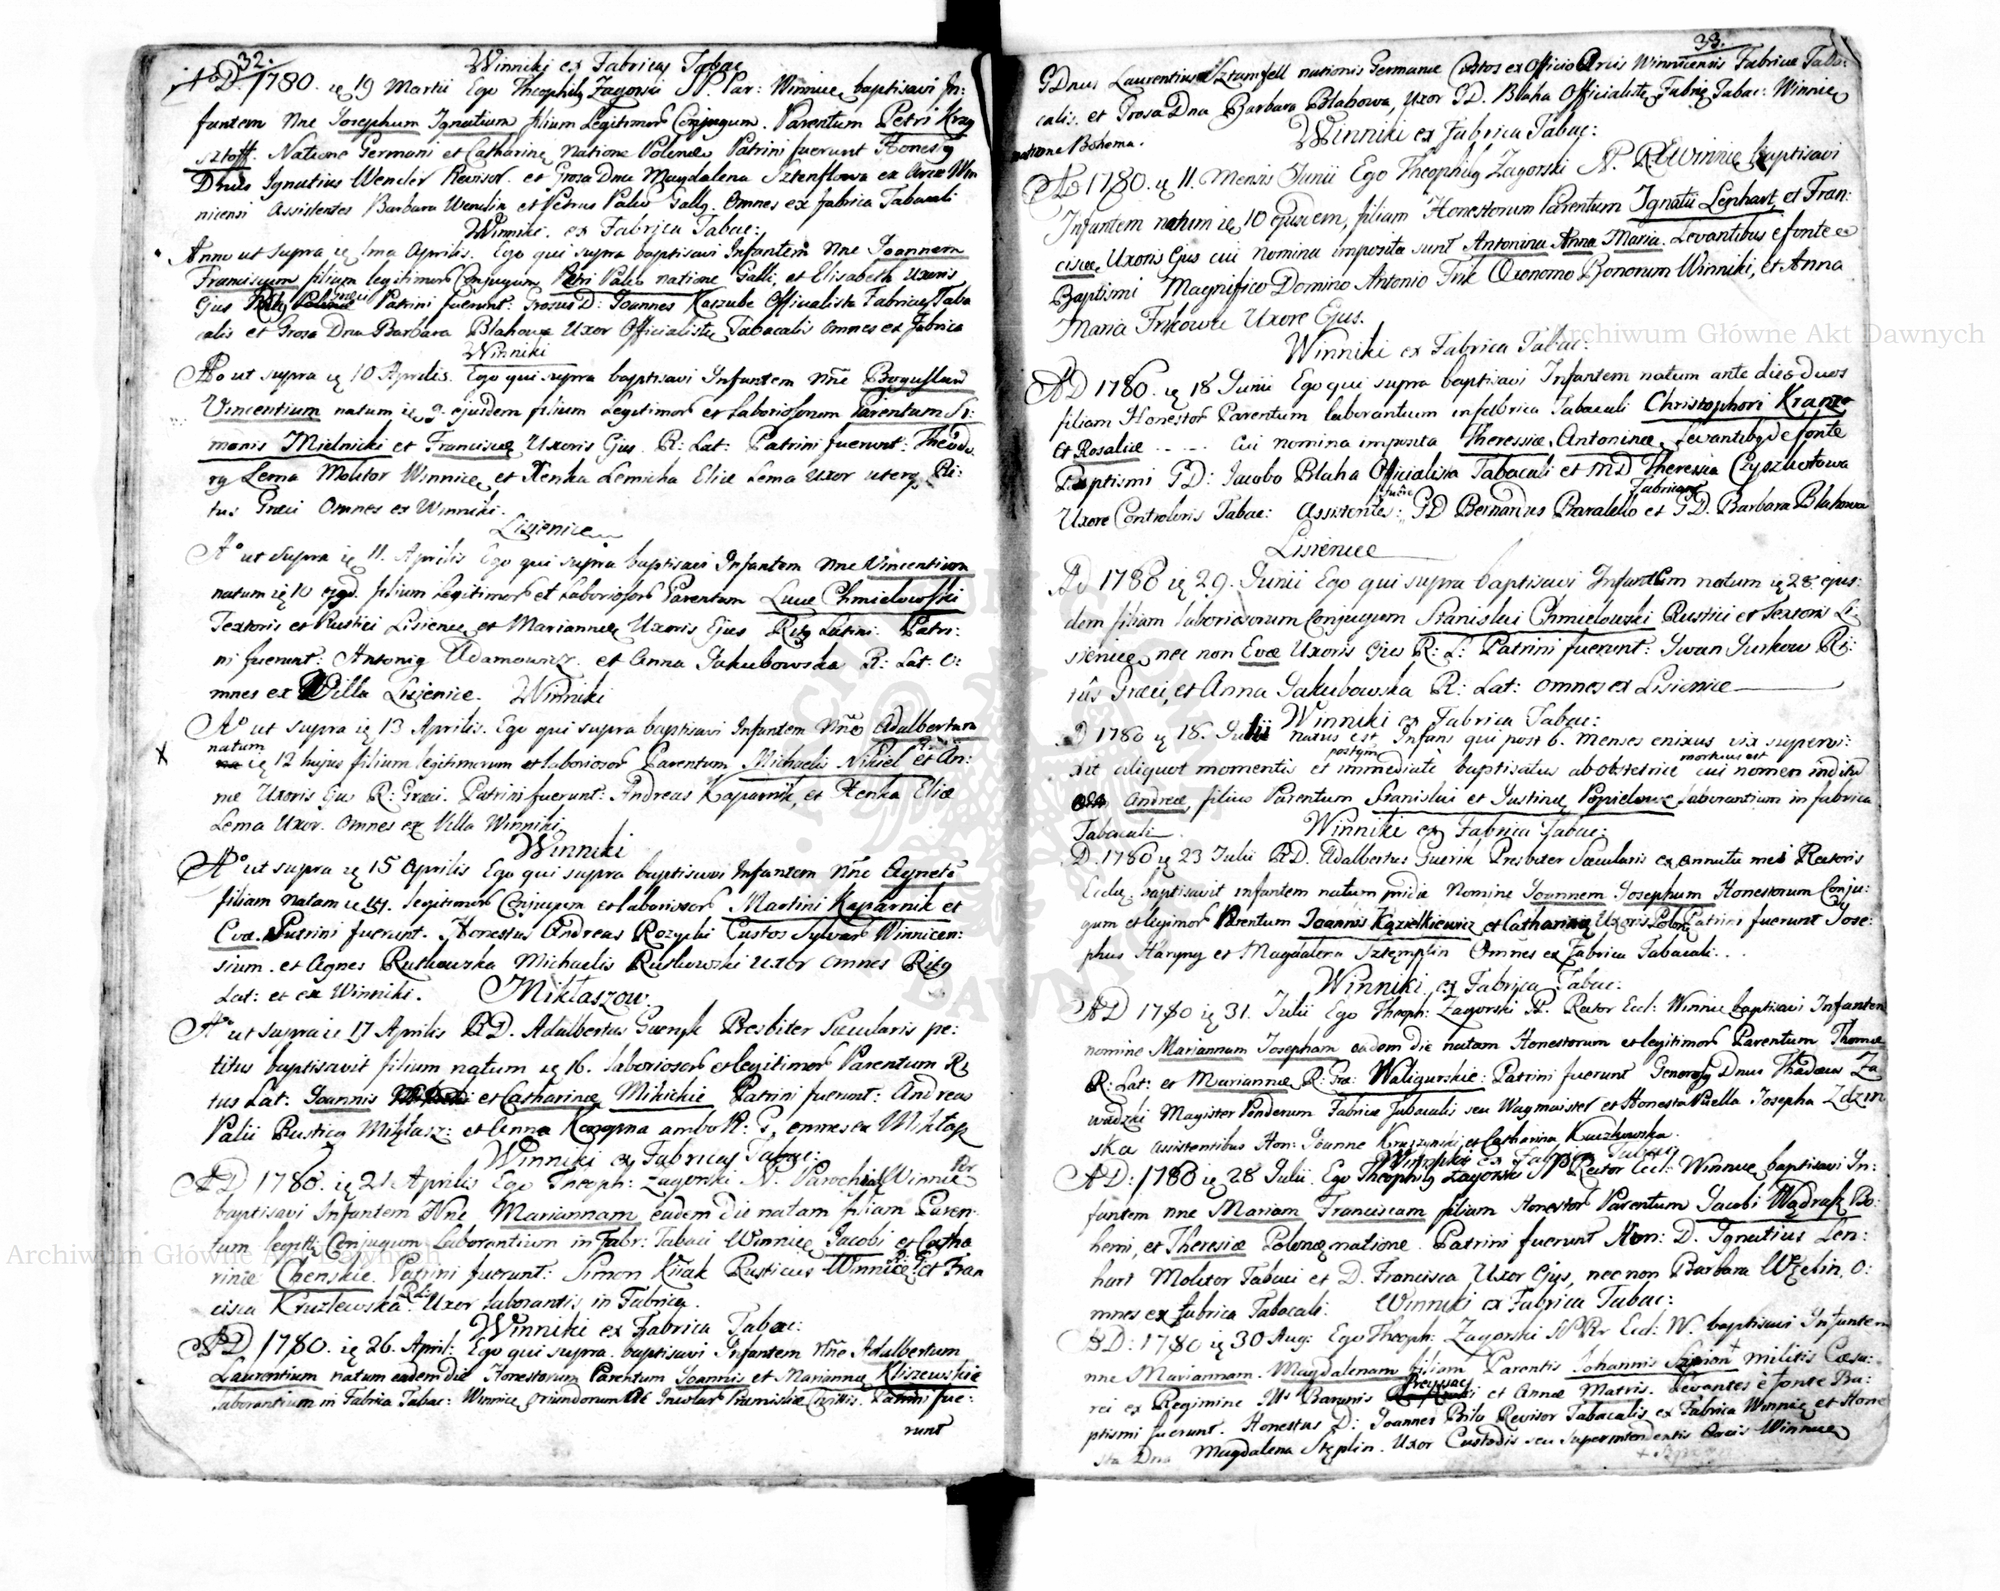 32.
Winniki ex Fabricæ Tabac
AD. 1780. ię 19 Martii Ego Theophilus Zagorski N. Par: Winnicę baptisavi In-
fantem Nne Josephum Ignatium filium Legitimor Conjugum. Parentum Petri Krę
sztoff. Natione Germani et Catharinę Natione Polonæ Patrini fuerunt Honestus
Dnus Ignatius Wencler Revisor. et Grosa Dna Magdalena Sztenflowa ex Arce Win
nicensi Assistentes Barbara Wenclin et Petrus Paleo Gallg. Omnes ex fabrica Tabacali
Winniki. ex Fabrica Tabac:
Anno ut supra ię 1ma Aprilis. Ego qui supra baptisavi Infantem Nne Joannem
Franciscum filium legitimor Conjugum Petri Paleo natione Galli, et Elisabeth Uxoris
Ejus Patrini fuerunt: Grosus D: Joannes Kaszube Officialista Fabricæ Taba
calis et Grosa Dna Barbara Blahowa Uxor Officialistę Tabacalis omnes ex fabrica
Winniki
Ao ut supra ię 10 Aprilis. Ego qui supra baptisavi Infantem Nne Boguslaum
Vincentium natum ię 9. ejusdem filium Legitimor et Laboriosorum Parentum Si:
monis Mielnicki et Franciscę Uxoris Ejus R: Lat: Patrini fuerunt: Theodo:
rg Lema Molitor Winnicę et Xenka Lemicha Eliæ Lema Uxor uterq Ri:
tus Græci Omnes ex Winniki.
Lisienice
Ao ut supra ię 11. Aprilis Ego qui supra baptisavi Infantem Nne Vincentium
natum ię 10 ejgd. filium Legitimor et Laboriosor Parentum Lucæ Chmielowski
Textoris et Rustici Lisienicę et Mariannæ Uxoris Ejus Ritg Latini. Patri:
ni fuerunt: Antonig Adamowicz. et Anna Jakubowska R: Lat. O:
mnes ex Villa Lisienice. Winniki
Ao ut supra ię 13 Aprilis. Ego qui supra baptisavi Infantem Nne Adalbertum
natum
X ię 12 hujus filium legitimorum et laboriosor Parentum Michaelis Nikiel et An:
næ Uxoris Ejus R: Græci. Patrini fuerunt: Andreas Kaparnik, et Xenka Eliæ
Lema Uxor. Omnes ex Villa Winniki
Winniki
Ao ut supra ię 15 Aprilis Ego qui supra baptisavi Infantem Nne Agnete
filiam natam ię 14. legitimor Conjugum et laboriosor Martini Kaparnik et
Evæ. Patrini fuerunt. Honestus Andreas Rozycki Custos Sylvar Winnicen:
sium. et Agnes Rutkowska Michaelis Rutkowski Uxor Omnes Ritg
Lat: et ex Winniki. Mikłaszow
Ao ut supra ię 17 Aprilis RD. Adalbertus Guenyk Presbiter Sæcularis pe:
titus baptisavit filium natum ię 16. laboriosor et legitimor Parentum Ri
tus Lat: Joannis et Catharinæ Mikickie Patrini fuerunt: Andreas
Palii Rusticg Mikłasz: et Anna ambo R: G, omnes ex Mikłasz
Winniki ex Fabricæ Tabac:
AD 1780. ię 21 Aprilis Ego Theoph: Zagorski. N. Parochial Winnicę
baptisavi Infantem Nne Mariannam eadem die natam filiam Paren-
tum legitt Conjugum Laborantium in Fabr: Tabaci Winnicę Jacobi et Catha
rinæ Chenskie. Patrini fuerunt: Simon Rusticus Winnice: et Fran
cisca Kruzlewska Uxor laborantis in Fabrica.
Winniki ex Fabrica Tabac:
AD 1780. ię 26. April: Ego qui supra. baptisavi Infantem Nne Adalbertum
Laurentium natum eadem die Honestorum Parentum Joannis et Mariannæ Kliszewskie
laborantium in Fabrica Tabac: Winnicę Oriundorum Patrini fue:
runt
33.
GDnus Laurentius Sztamfell nationis Germanæ Custos ex Officio Arcis Winnicensis Fabricæ Taba:
calis. et Grosa Dna Barbara Blahowa, Uxor GD. Blaha Officialistę Fabricę Tabac: Winnicę
natione Bohema. Winniki ex Fabrica Tabac:
Ao 1780. ię 11. Mensis Junii Ego Theophilg Zagorski N. R. Winnicę baptisavi
Infantem natum ię 10 ejusdem, filiam Honestorum Parentum Ignatii Lenhart, et Fran:
ciscæ, Uxoris Ejus cui nomina imposita sunt Antonina Anna Maria. Levantibus e fonte
Baptismi Magnifico Domino Antonio Frik Œconomo Bonorum Winniki, et Anna
Maria Frikowa Uxore Ejus.
Winniki ex Fabrica Tabac:
AD 1780. ię 18 Junii Ego qui supra baptisavi Infantem natum ante dies duos
filiam Honestor Parentum laborantium in fabrica Tabacali Christophori Kranz
et Rosaliæ ---- cui nomina imposita Theressiæ, Antoninæ, Levantibg de fonte
Baptismi GD: Jacobo Blaha Officialista Tabacali et MD Theressia
Uxore Controloris Tabac: Assistentes: GD Bernardus Pravalello et GD. Barbara Blahowa
Lisienice
Ad 1780 ię 29. Junii Ego qui supra baptisavi Infantem natum ię 28. ejus:
dem filiam laboriosorum Conjugum Stanislai Chmielowski Rustici et Textoris Li
sienicę, nec non Evæ Uxoris Ejus R: L: Patrini fuerunt: Iwan Jurkow Ri:
tûs Græci, et Anna Jakubowska R: Lat: omnes ex Lisienice
Winniki ex Fabrica Tabac:
D 1780 ię 18. Julii natus est Infans qui post 6. Menses enixus vix supervi:
xit aliquot momentis et immediatè baptisatus ab obstetrice cui nomen inditu
Andreæ, filius Parentum Stanislai et Justinæ Popielowe laborantium in fabrica
Tabacali. Winniki ex Fabrica Tabac:
D. 1780 ię 23 Julii RD. Adalbertus Guenik Presbiter Sæcularis ex annutu mei Rectoris
Eclæ baptisavit infantem natum pridie Nomine Joannem Josephum Honestorum Conju-
gum et legimor Parentum Joannis Kęzielkiewicz et Catharinæ Uxoris Polon Patrini fuerunt Jose-
phus Haryng et Magdalena Sztęmplin Omnes ex Fabrica Tabacali...
Winniki ex Fabrica Tabac:
AD 1780 ię 31. Julii Ego Theoph: Zagorski N. Rector Ecl: Winnic baptisavi Infantem
nomine Mariannam Josepham eadem die natam Honestorum et legitimor Parentum Thomæ
R: Lat: et Mariannæ, R: Græ: Waligurskie: Patrini fuerunt Generosg Dnus Thadeus Za
wadzki Magister Ponderum Fabricæ Tabacalis seu Wagmaister et Honesta Puella Josepha Zdzin
ska assistentibus Hon: Joanne Kruszynski, et Catharina Kruzlewska.
Winniki ex Fabrica Tabac
AD: 1780 ię 28 Julii. Ego Theophilg Zagorski N Rector Ecl: Winnicę baptisavi In:
fantem nne Mariam Franciscam filiam Honestor Parentum Jacobi Wądrask Bo-
hemi, et Theresiæ Polonæ natione. Patrini fuerunt Hon: D. Ignatius Len:
hart Molitor Tabaci et D. Francisca Uxor Ejus, nec non Barbara Węclin, O:
mnes ex fabrica Tabacali. Winniki ex Fabrica Tabac:
AD: 1780 ię 30 Aug: Ego Theoph: Zagorski N Rr Ecl: W. baptisavi Infantem
nne Mariannam. Magdalenam filiam Parentis Johannis Szpion militis Cæsa:
rei ex Regimine Baronis Preyssag et Annæ Matris. Levantes è fonte Ba:
ptismi fuerunt. Honestus D: Joannes Bila Revisor Tabacalis ex Fabrica Winnicę et Hone
sta Dna Magdalena Stęplin. Uxor Custodis seu Superintendentis Arcis Winnicę
Archiwum Główne Akt Dawnych
Archiwum Główne Akt Dawnych